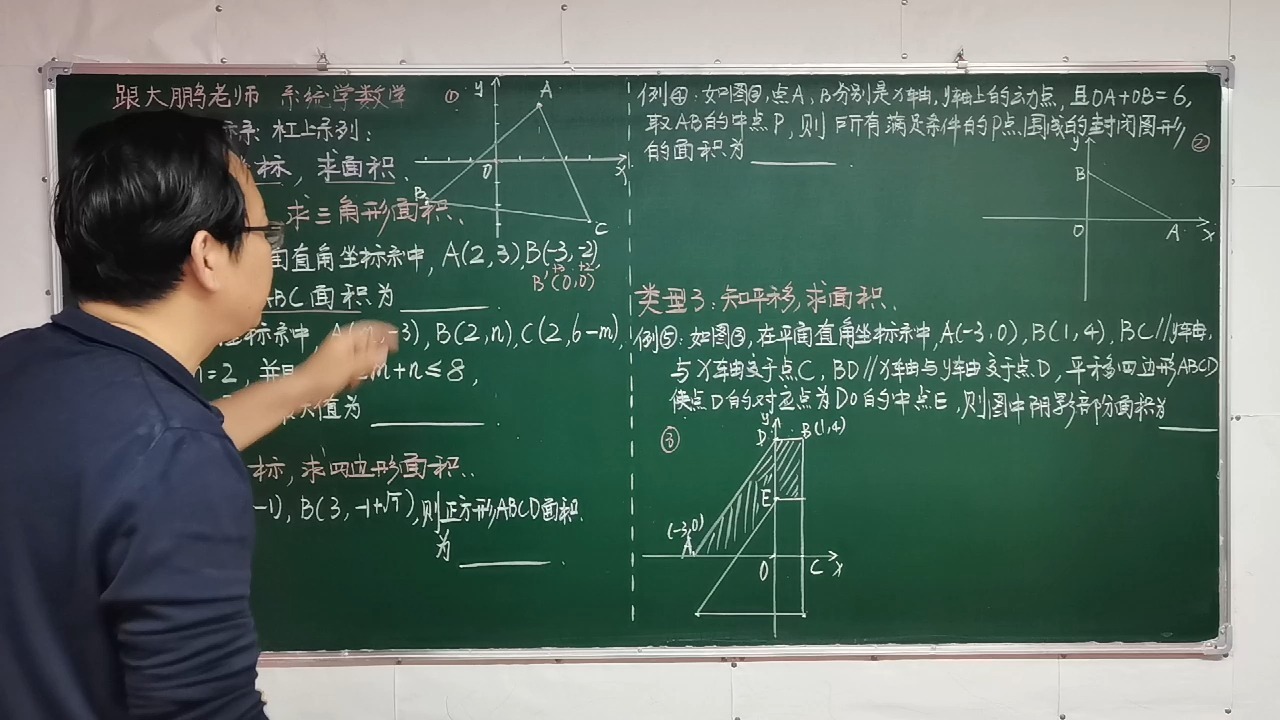 跟大鹏老师 系统学数学
标系: 杠上系列:
坐标, 求面积.
求三角形面积.
面直角坐标系中, A(2,3), B(-3,-2),
+3 +2
B'(0,0)
ABC面积为
坐标系中, -3), B(2,n), C(2,6-m),
m=2, 并且 m+n≤8,
最大值为
标, 求四边形面积.
-1), B(3,-1+√7), 则正方形ABCD面积
为
① y
A
O x
B
C
例④: 如图②, 点A, B分别是x轴, y轴上的动点, 且OA+OB=6,
取AB的中点P, 则所有满足条件的P点围成的封闭图形
的面积为
② y
B
O A x
类型3: 知平移, 求面积.
例⑤: 如图③, 在平面直角坐标系中, A(-3,0), B(1,4), BC//y轴,
与x轴交于点C, BD//x轴与y轴交于点D, 平移四边形ABCD
使点D的对应点为DO的中点E, 则图中阴影部分面积为
③ y
D B(1,4)
E
(-3,0)
A O C x